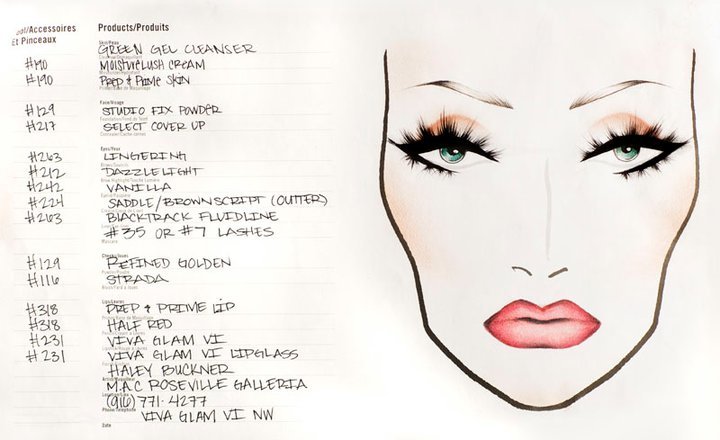 ool/Accessoires Products/Produits
Et Pinceaux
Skin/Peau
GREEN GEL CLEANSER
#190 MOISTURELUSH CREAM
#190 PREP & PRIME SKIN
Face/Visage
#129 STUDIO FIX POWDER
#217 SELECT COVER UP
Eyes/Yeux
#263 LINGERING
#212 DAZZLELIGHT
#242 VANILLA
#224 SADDLE/BROWNSCRIPT (OUTTER)
#263 BLACKTRACK FLUIDLINE
#35 OR #7 LASHES
Mascara
Cheeks/Joues
#129 REFINED GOLDEN
#116 STRADA
Lips/Lèvres
#318 PREP & PRIME LIP
#318 HALF RED
#231 VIVA GLAM VI
#231 VIVA GLAM VI LIPGLASS
HALEY BUCKNER
M.A.C ROSEVILLE GALLERIA
(916) 771-4277
Phone/Téléphone
VIVA GLAM VI NW
Date